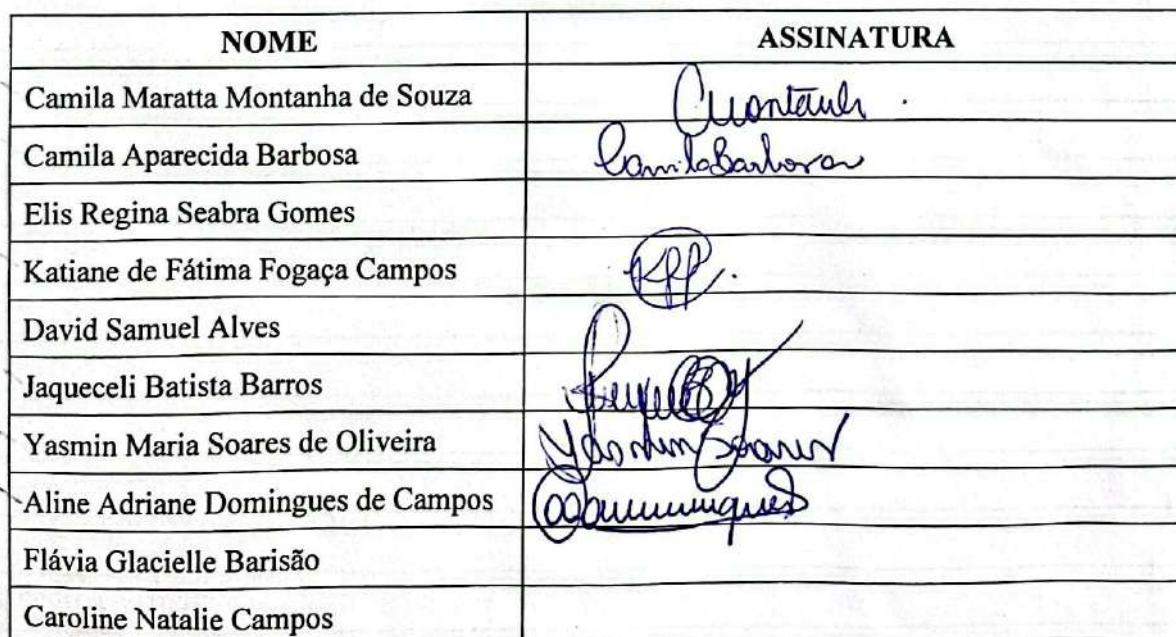 NOME ASSINATURA
Camila Maratta Montanha de Souza
Camila Aparecida Barbosa Camila Barbosa
Elis Regina Seabra Gomes
Katiane de Fátima Fogaça Campos
David Samuel Alves
Jaqueceli Batista Barros
Yasmin Maria Soares de Oliveira Yasmin Soares
Aline Adriane Domingues de Campos
Flávia Glacielle Barisão
Caroline Natalie Campos